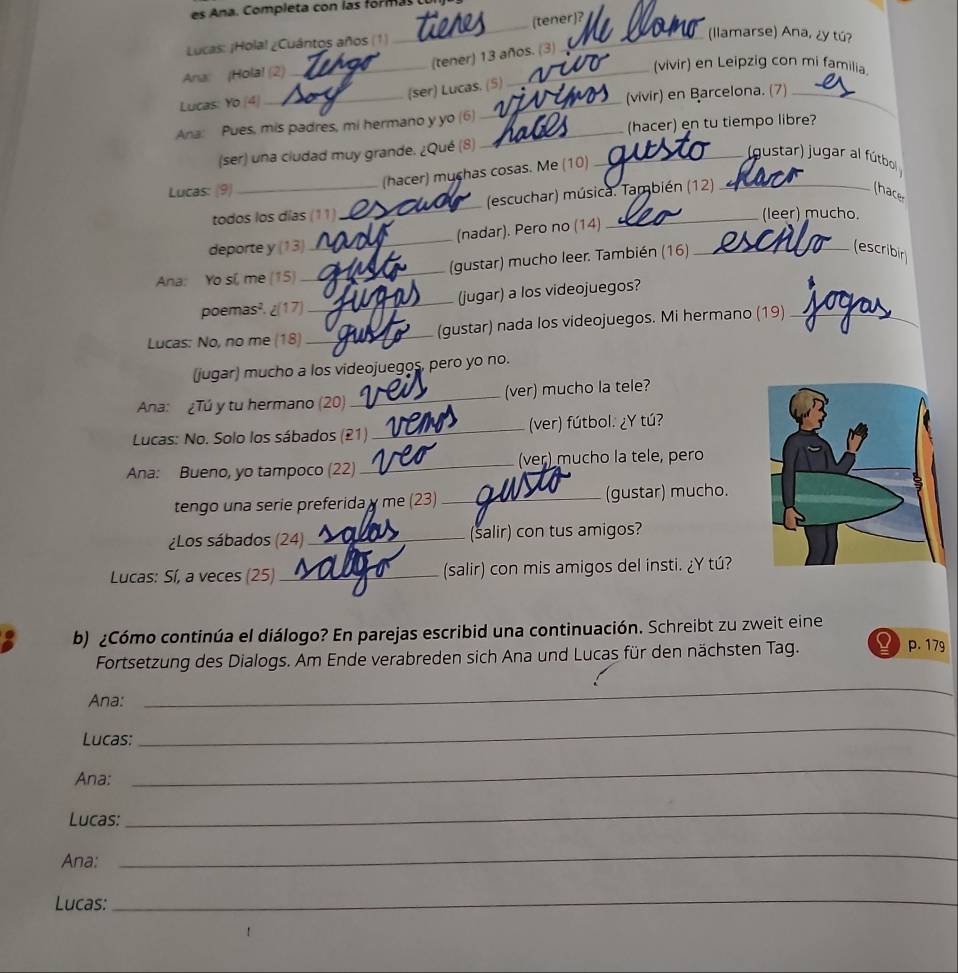 es Ana. Completa con las formas
Lucas: ¡Hola! ¿Cuántos años (1) tienes (tener)?
Ana: ¡Hola! (2) Tengo (tener) 13 años. (3) Me llamo (llamarse) Ana, ¿y tú?
Lucas: Yo (4) soy (ser) Lucas. (5) vivo (vivir) en Leipzig con mi familia.
Ana: Pues, mis padres, mi hermano y yo (6) vivimos (vivir) en Barcelona. (7) es
(ser) una ciudad muy grande. ¿Qué (8) haces (hacer) en tu tiempo libre?
Lucas: (9) (hacer) muchas cosas. Me (10) gusto (gustar) jugar al fútbol,
todos los días (11) escudo (escuchar) música. También (12) hacr (hacer
deporte y (13) nado (nadar). Pero no (14) leo (leer) mucho.
Ana: Yo sí, me (15) gusto (gustar) mucho leer. También (16) escrilo (escribir)
poemas². ¿(17) jugas (jugar) a los videojuegos?
Lucas: No, no me (18) gusto (gustar) nada los videojuegos. Mi hermano (19) jogas
(jugar) mucho a los videojuegos, pero yo no.
Ana: ¿Tú y tu hermano (20) veis (ver) mucho la tele?
Lucas: No. Solo los sábados (21) vemos (ver) fútbol. ¿Y tú?
Ana: Bueno, yo tampoco (22) veo (ver) mucho la tele, pero
tengo una serie preferida y me (23) gusto (gustar) mucho.
¿Los sábados (24) salas (salir) con tus amigos?
Lucas: Sí, a veces (25) salgo (salir) con mis amigos del insti. ¿Y tú?
b) ¿Cómo continúa el diálogo? En parejas escribid una continuación. Schreibt zu zweit eine
Fortsetzung des Dialogs. Am Ende verabreden sich Ana und Lucas für den nächsten Tag.
p. 179
Ana:
Lucas:
Ana:
Lucas:
Ana:
Lucas: